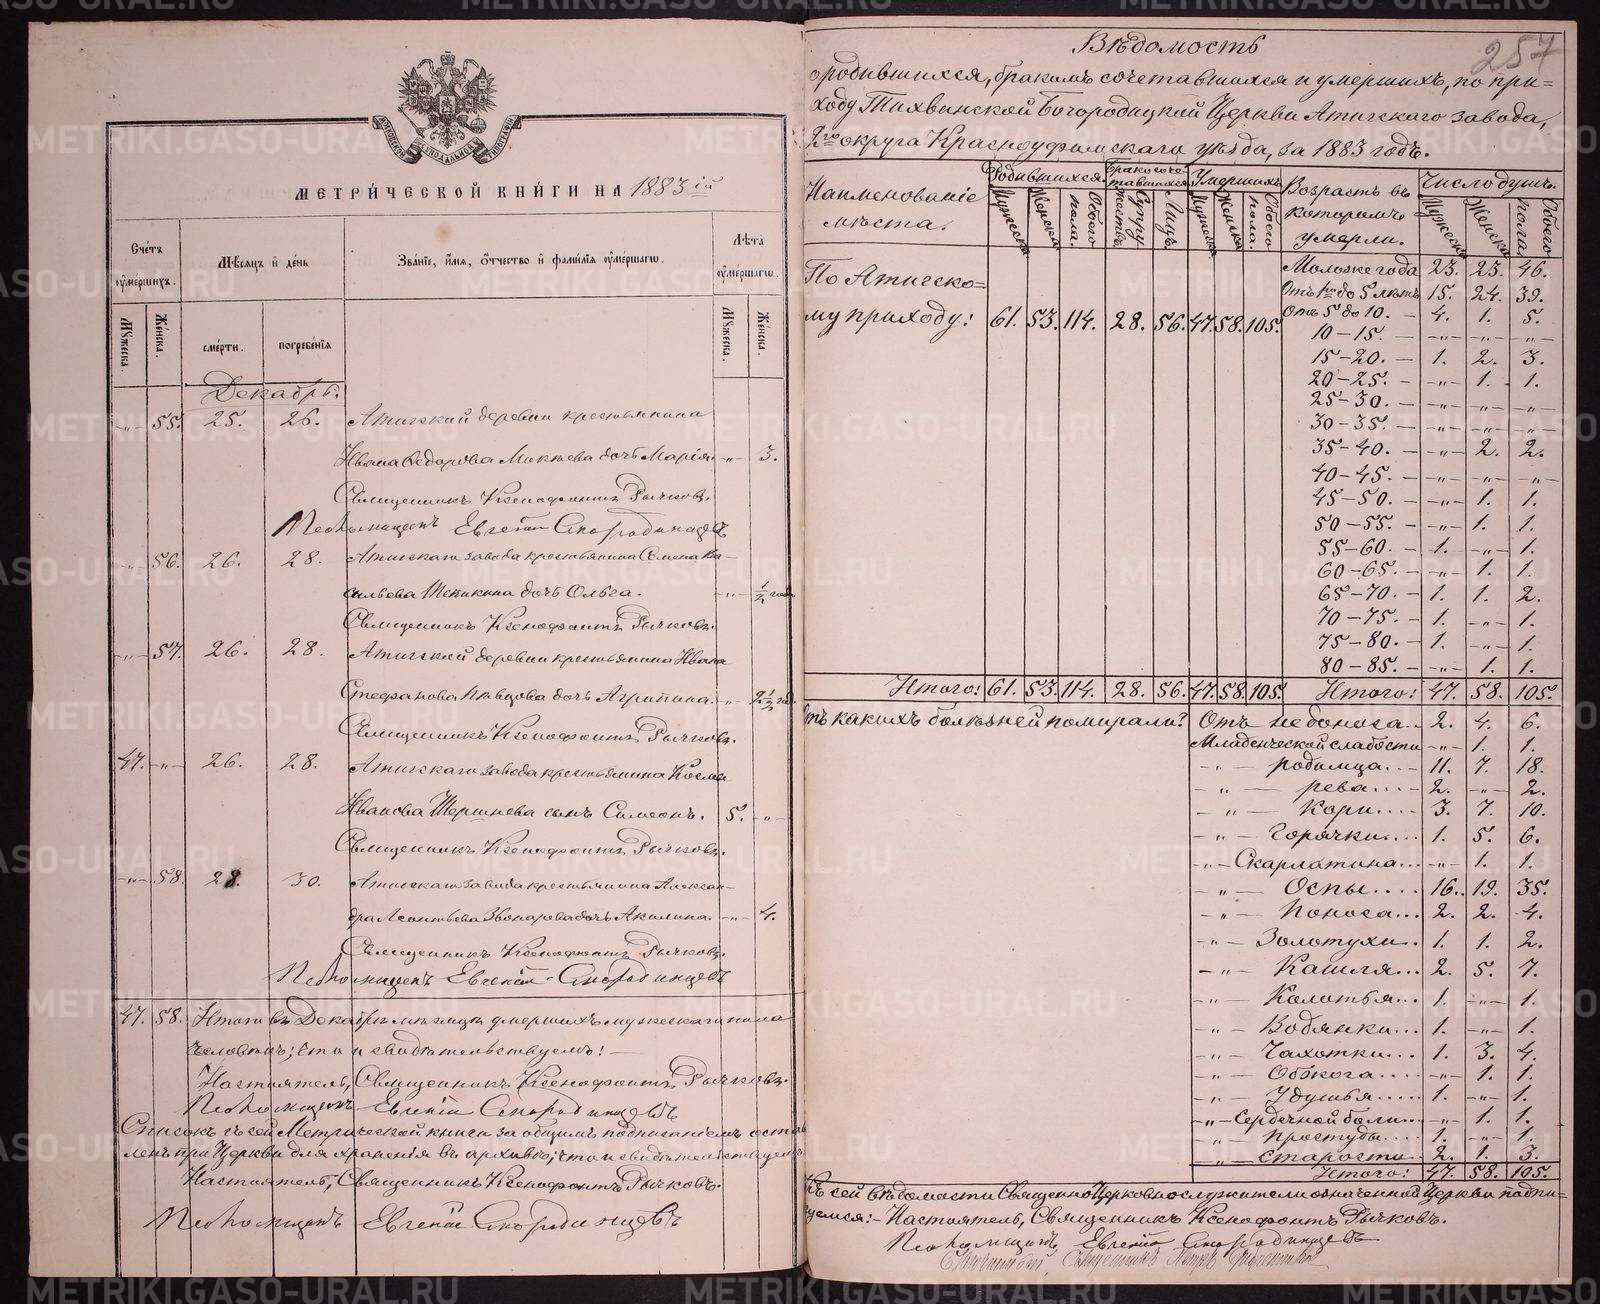 МЕТРИЧЕСКОЙ КНИГИ НА 1883 ій
Счетъ умершихъ.
Мѣсяцъ и день
Званіе, имя, отчество и фамилія умершаго.
Лѣта умершаго.
Мужеска. Женска.
смерти. погребенія
Мужеска. Женска.
Декабрь.
-"- 55. 25. 26. Атигской деревни крестьянина
Ивана Ѳедорова дочь Марія. -"- 3.
Священникъ Ксенофонтъ Рычковъ.
Псаломщикъ Евгеній Смородинцевъ
-"- 56. 26. 28. Атигскаго завода крестьянина Семена Ва-
сильева дочь Ольга. -"- ½ года
Священникъ Ксенофонтъ Рычковъ.
-"- 57. 26. 28. Атигской деревни крестьянина Ивана
Стефанова Пѣвцова дочь Агрипина. -"- 2½ год.
Священникъ Ксенофонтъ Рычковъ.
47. -"- 26. 28. Атигскаго завода крестьянина Косьмы
Иванова сынъ Симеонъ. 5. -"-
Священникъ Ксенофонтъ Рычковъ.
-"- 58. 28. 30. Атигскаго завода крестьянина Алексан-
дра Леонтьева Звонарева дочь Акилина. -"- 4.
Священникъ Ксенофонтъ Рычковъ.
Псаломщикъ Евгеній Смородинцевъ
47. 58. Итого въ Декабрѣ мѣсяцѣ умершихъ мужескаго пола
человѣкъ; что и свидѣтельствуемъ: –
Настоятель, Священникъ Ксенофонтъ Рычковъ.
Псаломщикъ Евгеній Смородинцевъ
Списокъ съ сей Метрической книги за общимъ подписаніемъ остав
ленъ при Церкви для храненія въ архивѣ; что и свидѣтельствуемъ
Настоятель, Священникъ Ксенофонтъ Рычковъ.
Псаломщикъ Евгеній Смородинцевъ
257
Вѣдомость
о родившихся, бракомъ сочетавшихся и умершихъ, по при-
ходу Тихвинской Богородицкой Церкви Атигскаго завода,
2го округа Красноуфимскаго уѣзда, за 1883 годъ.
Наименованіе мѣста.
Родившихся
Бракосоче-тавшихся
Умершихъ
Возрастъ въ которомъ умерли.
Число душъ.
Мужеска Женска Обоего пола. Супружествъ Лицъ Мужеска Женска Обоего пола. Мужеска Женска Обоего пола
По Атигско-
му приходу: 61. 53. 114. 28. 56. 47. 58. 105.
Моложе года 23. 23. 46.
Отъ 1го до 5 лѣтъ 15. 24. 39.
Отъ 5 до 10. – 4. 1. 5.
10–15. – -"- -"- -"-
15–20. – 1. 2. 3.
20–25. – -"- 1. 1.
25–30. – -"- -"- -"-
30–35. – -"- -"- -"-
35–40. – -"- 2. 2.
40–45. – -"- -"- -"-
45–50. – -"- 1. 1.
50–55. – -"- 1. 1.
55–60. – 1. -"- 1.
60–65. – -"- 1. 1.
65–70. – 1. 1. 2.
70–75. – 1. -"- 1.
75–80. – 1. -"- 1.
80–85. – -"- 1. 1.
Итого: 61. 53. 114. 28. 56. 47. 58. 105. Итого: 47. 58. 105.
Отъ какихъ болѣзней помирали? Отъ недоноса.. 2. 4. 6.
Младенческой слабости -"- 1. 1.
-"- родимца... 11. 7. 18.
-"- рева.... 2. -"- 2.
-"- Кори.... 3. 7. 10.
-"- Горячки.... 1. 5. 6.
-"- Скарлатина... -"- 1. 1.
-"- Оспы.... 16. 19. 35.
-"- Поноса... 2. 2. 4.
-"- Золотухи.. 1. 1. 2.
-"- Кашля... 2. 5. 7.
-"- Колотья... 1. -"- 1.
-"- Водянки... 1. -"- 1.
-"- Чахотки... 1. 3. 4.
-"- Обжога.... -"- 1. 1.
-"- Удушья..... 1. -"- 1.
-"- Сердечной боли... -"- 1. 1.
-"- Простуды.... 1. -"- 1.
-"- Старости.. 2. 1. 3.
Итого: 47. 58. 105.
Къ сей вѣдомости Священно Церковнослужители означенной Церкви подпи-
суемся: – Настоятель, Священникъ Ксенофонтъ Рычковъ.
Псаломщикъ Евгеній Смородинцевъ
METRIKI.GASO-URAL.RU